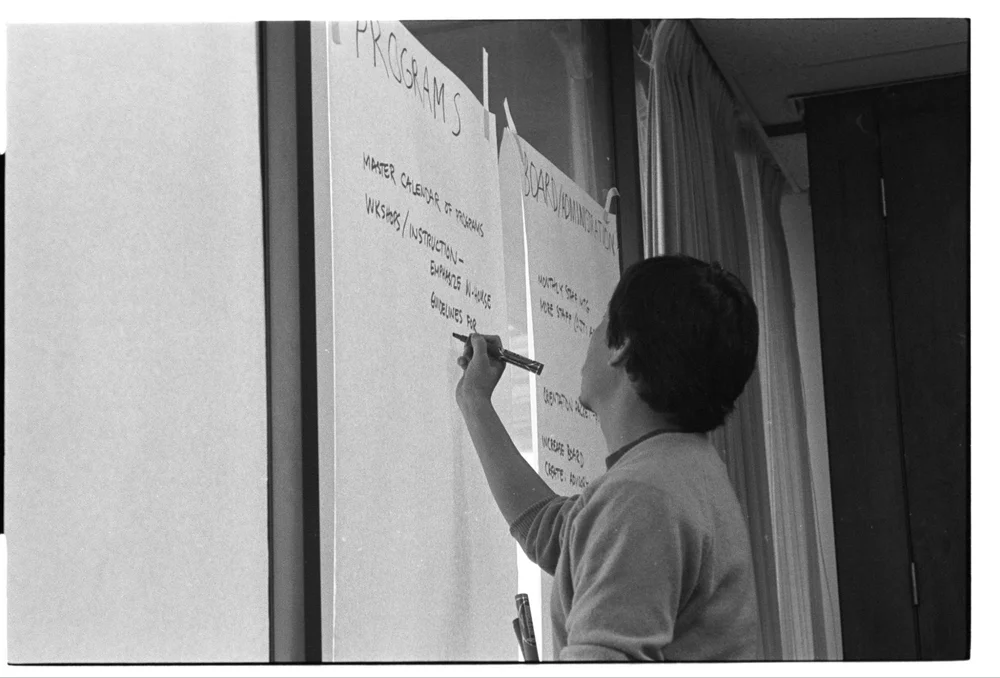 PROGRAMS
MASTER CALENDAR OF PROGRAMS
WKSHOPS/INSTRUCTION-
EMPHASIZE IN-HOUSE
GUIDELINES FOR
BOARD/ADMINISTRATION
MONTHLY STAFF MTG
MORE STAFF
ORIENTATION PACKET
INCREASE BOARD
CREATE